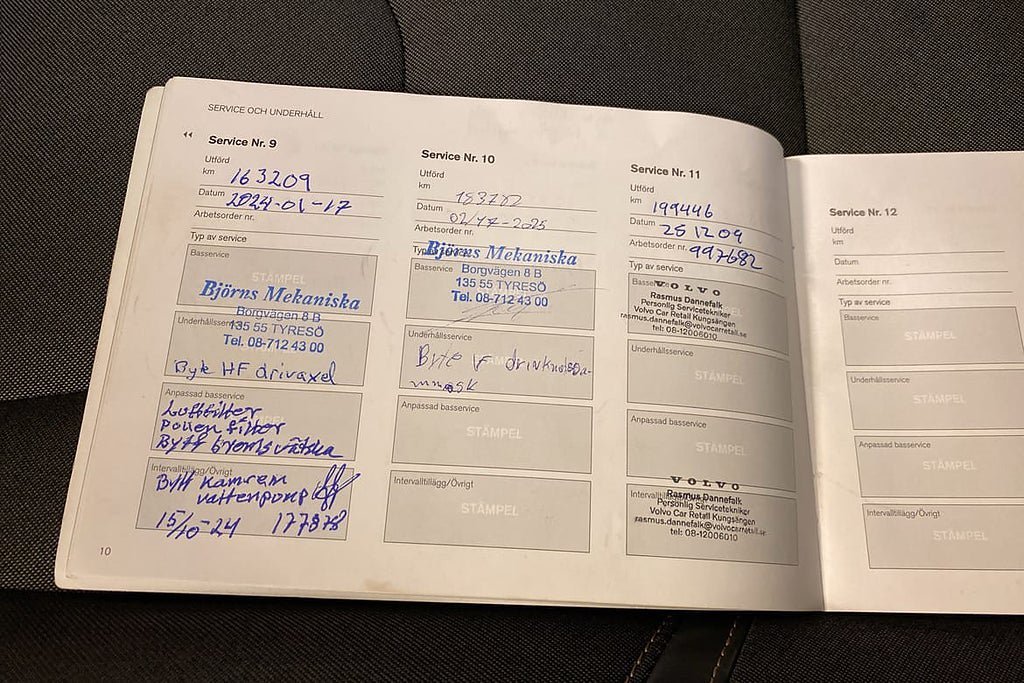 SERVICE OCH UNDERHÅLL
Service Nr. 9
Utförd
km 163209
Datum 2024-01-17
Arbetsorder nr.
Typ av service
Basservice
STÄMPEL
Björns Mekaniska
Borgvägen 8 B
Underhållsservice
135 55 TYRESÖ
Tel. 08-712 43 00
Byte HF drivaxel
Anpassad basservice
Luftfilter
Pollen filter
Bytt bromsvätska
Intervalltillägg/Övrigt
Bytt Kamrem
vattenpump
15/10-24 177878
10
Service Nr. 10
Utförd
km 183782
Datum 02/17-2025
Arbetsorder nr.
Björns Mekaniska
Basservice
Borgvägen 8 B
135 55 TYRESÖ
Tel. 08-712 43 00
Underhållsservice
Byte v
Anpassad basservice
STÄMPEL
Intervalltillägg/Övrigt
STÄMPEL
Service Nr. 11
Utförd
km 199446
Datum 251209
Arbetsorder nr. 997682
Typ av service
VOLVO
Rasmus Dannefalk
Personlig Servicetekniker
Volvo Car Retail Kungsängen
rasmus.dannefalk@volvocarretail.se
tel: 08-12006010
Underhållsservice
STÄMPEL
Anpassad basservice
STÄMPEL
VOLVO
Rasmus Dannefalk
Personlig Servicetekniker
Volvo Car Retail Kungsängen
rasmus.dannefalk@volvocarretail.se
tel: 08-12006010
Service Nr. 12
Utförd
km
Datum
Arbetsorder nr.
Typ av service
Basservice
STÄMPEL
Underhållsservice
STÄMPEL
Anpassad basservice
STÄMPEL
Intervalltillägg/Övrigt
STÄMPEL